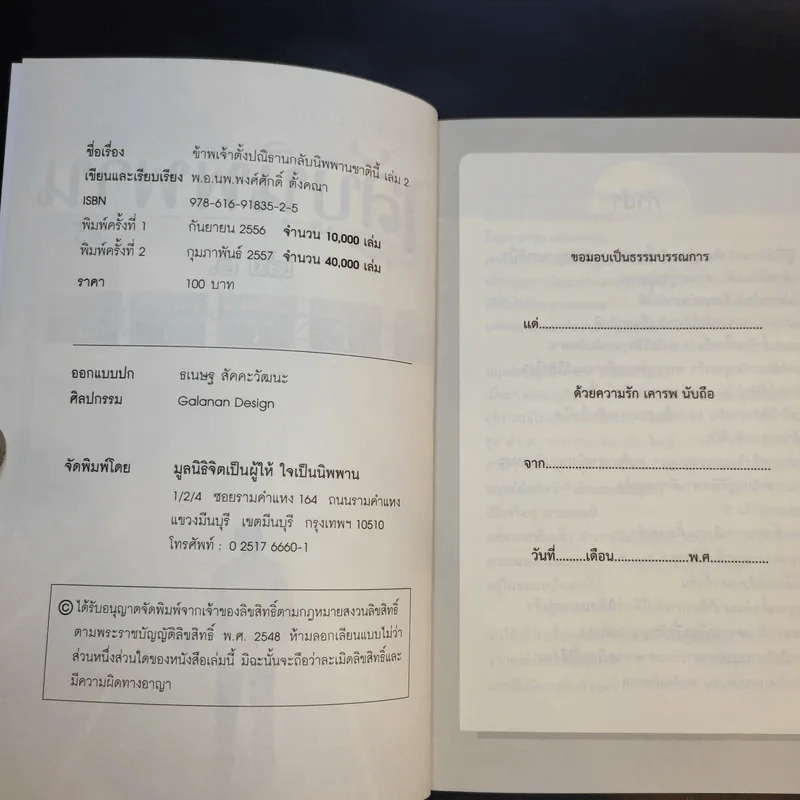 ชื่อเรื่อง ข้าพเจ้าตั้งปณิธานกลับนิพพานชาตินี้ เล่ม 2
เขียนและเรียบเรียง พ.อ.นพ.พงค์ศักดิ์ ตั้งคณา
ISBN 978-616-91835-2-5
พิมพ์ครั้งที่ 1 กันยายน 2556 จำนวน 10,000 เล่ม
พิมพ์ครั้งที่ 2 กุมภาพันธ์ 2557 จำนวน 40,000 เล่ม
ราคา 100 บาท
ออกแบบปก ธเนษฐ สัคคะวัฒนะ
ศิลปกรรม Galanan Design
จัดพิมพ์โดย มูลนิธิจิตเป็นผู้ให้ ใจเป็นนิพพาน
1/2/4 ซอยรามคำแหง 164 ถนนรามคำแหง
แขวงมีนบุรี เขตมีนบุรี กรุงเทพฯ 10510
โทรศัพท์ : 0 2517 6660-1
© ได้รับอนุญาตจัดพิมพ์จากเจ้าของลิขสิทธิ์ตามกฎหมายสงวนลิขสิทธิ์
ตามพระราชบัญญัติลิขสิทธิ์ พ.ศ. 2548 ห้ามลอกเลียนแบบไม่ว่า
ส่วนหนึ่งส่วนใดของหนังสือเล่มนี้ มิฉะนั้นจะถือว่าละเมิดลิขสิทธิ์และ
มีความผิดทางอาญา
ขอมอบเป็นธรรมบรรณการ
แด่....................................................................
ด้วยความรัก เคารพ นับถือ
จาก....................................................................
วันที่.........เดือน.......................พ.ศ..................